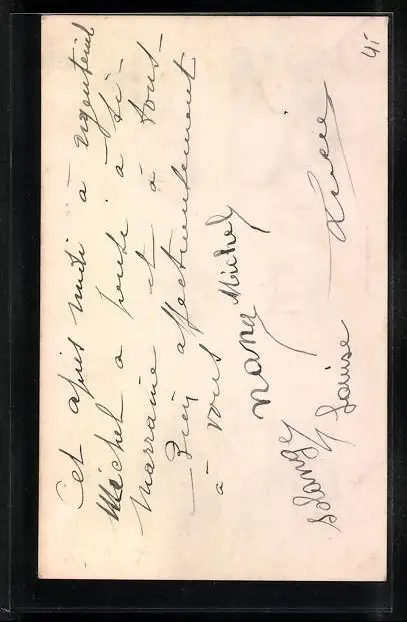 Cet après midi à Argenteuil
Michel a pensé à sa
marraine et à tous -
Bien affectueusement
à vous
Nana Michel
Solange
Louise
4,-